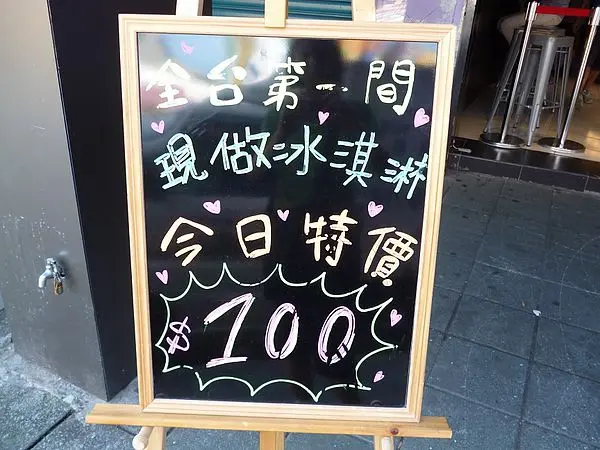 全台第一間
現做冰淇淋
今日特價
$100